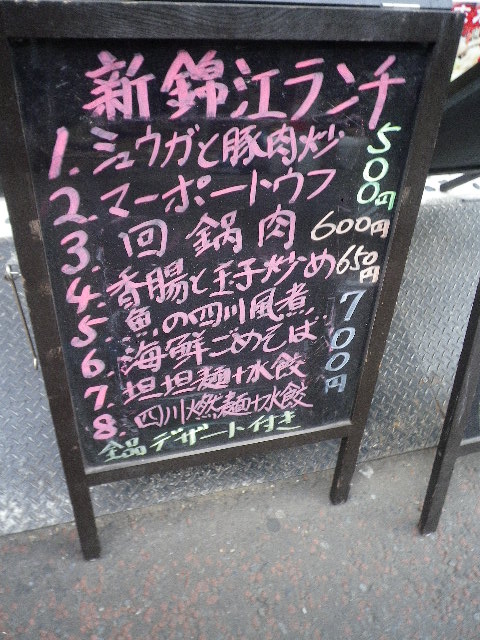 新錦江ランチ
1.ミュウガと豚肉炒 500円
2.マーポートウフ
3.回鍋肉 600円
4.香腸と玉子炒め 650円
5.魚の四川風煮 700円
6.海鮮ごめそば
7.坦坦麺+水餃
8.四川燃麺+水餃
デザート付き